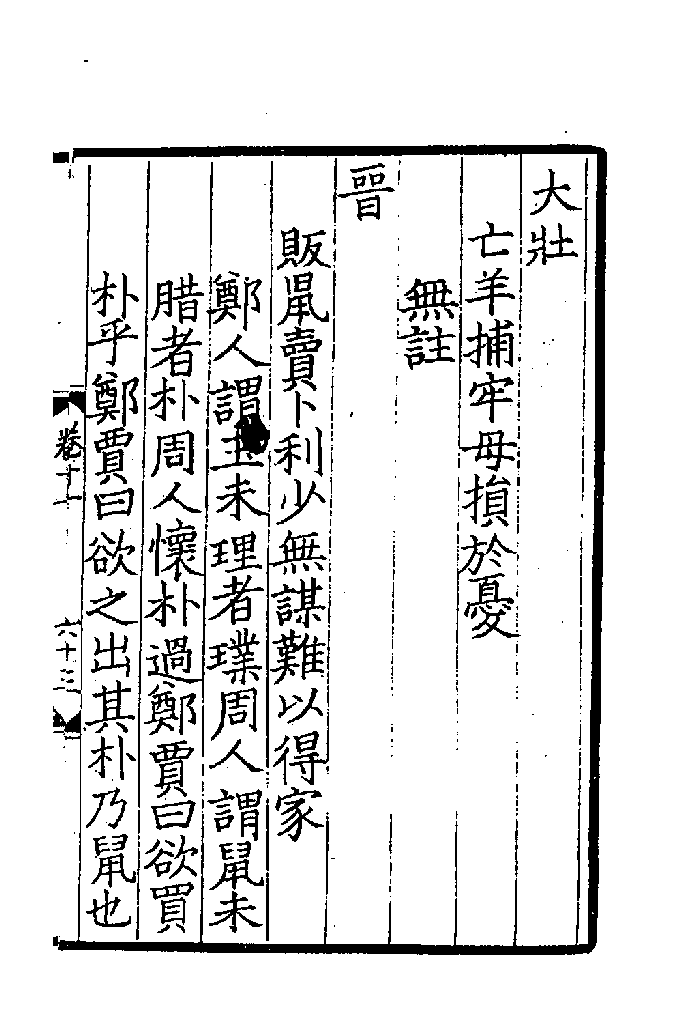 大壯
亡羊捕牢毋損於憂
無註
晉
販鼠賣卜利少無謀難以得家
鄭人謂玉未理者璞周人謂鼠未
腊者朴周人懷朴過鄭賈曰欲買
朴乎鄭賈曰欲之出其朴乃鼠也
卷十一
六十三